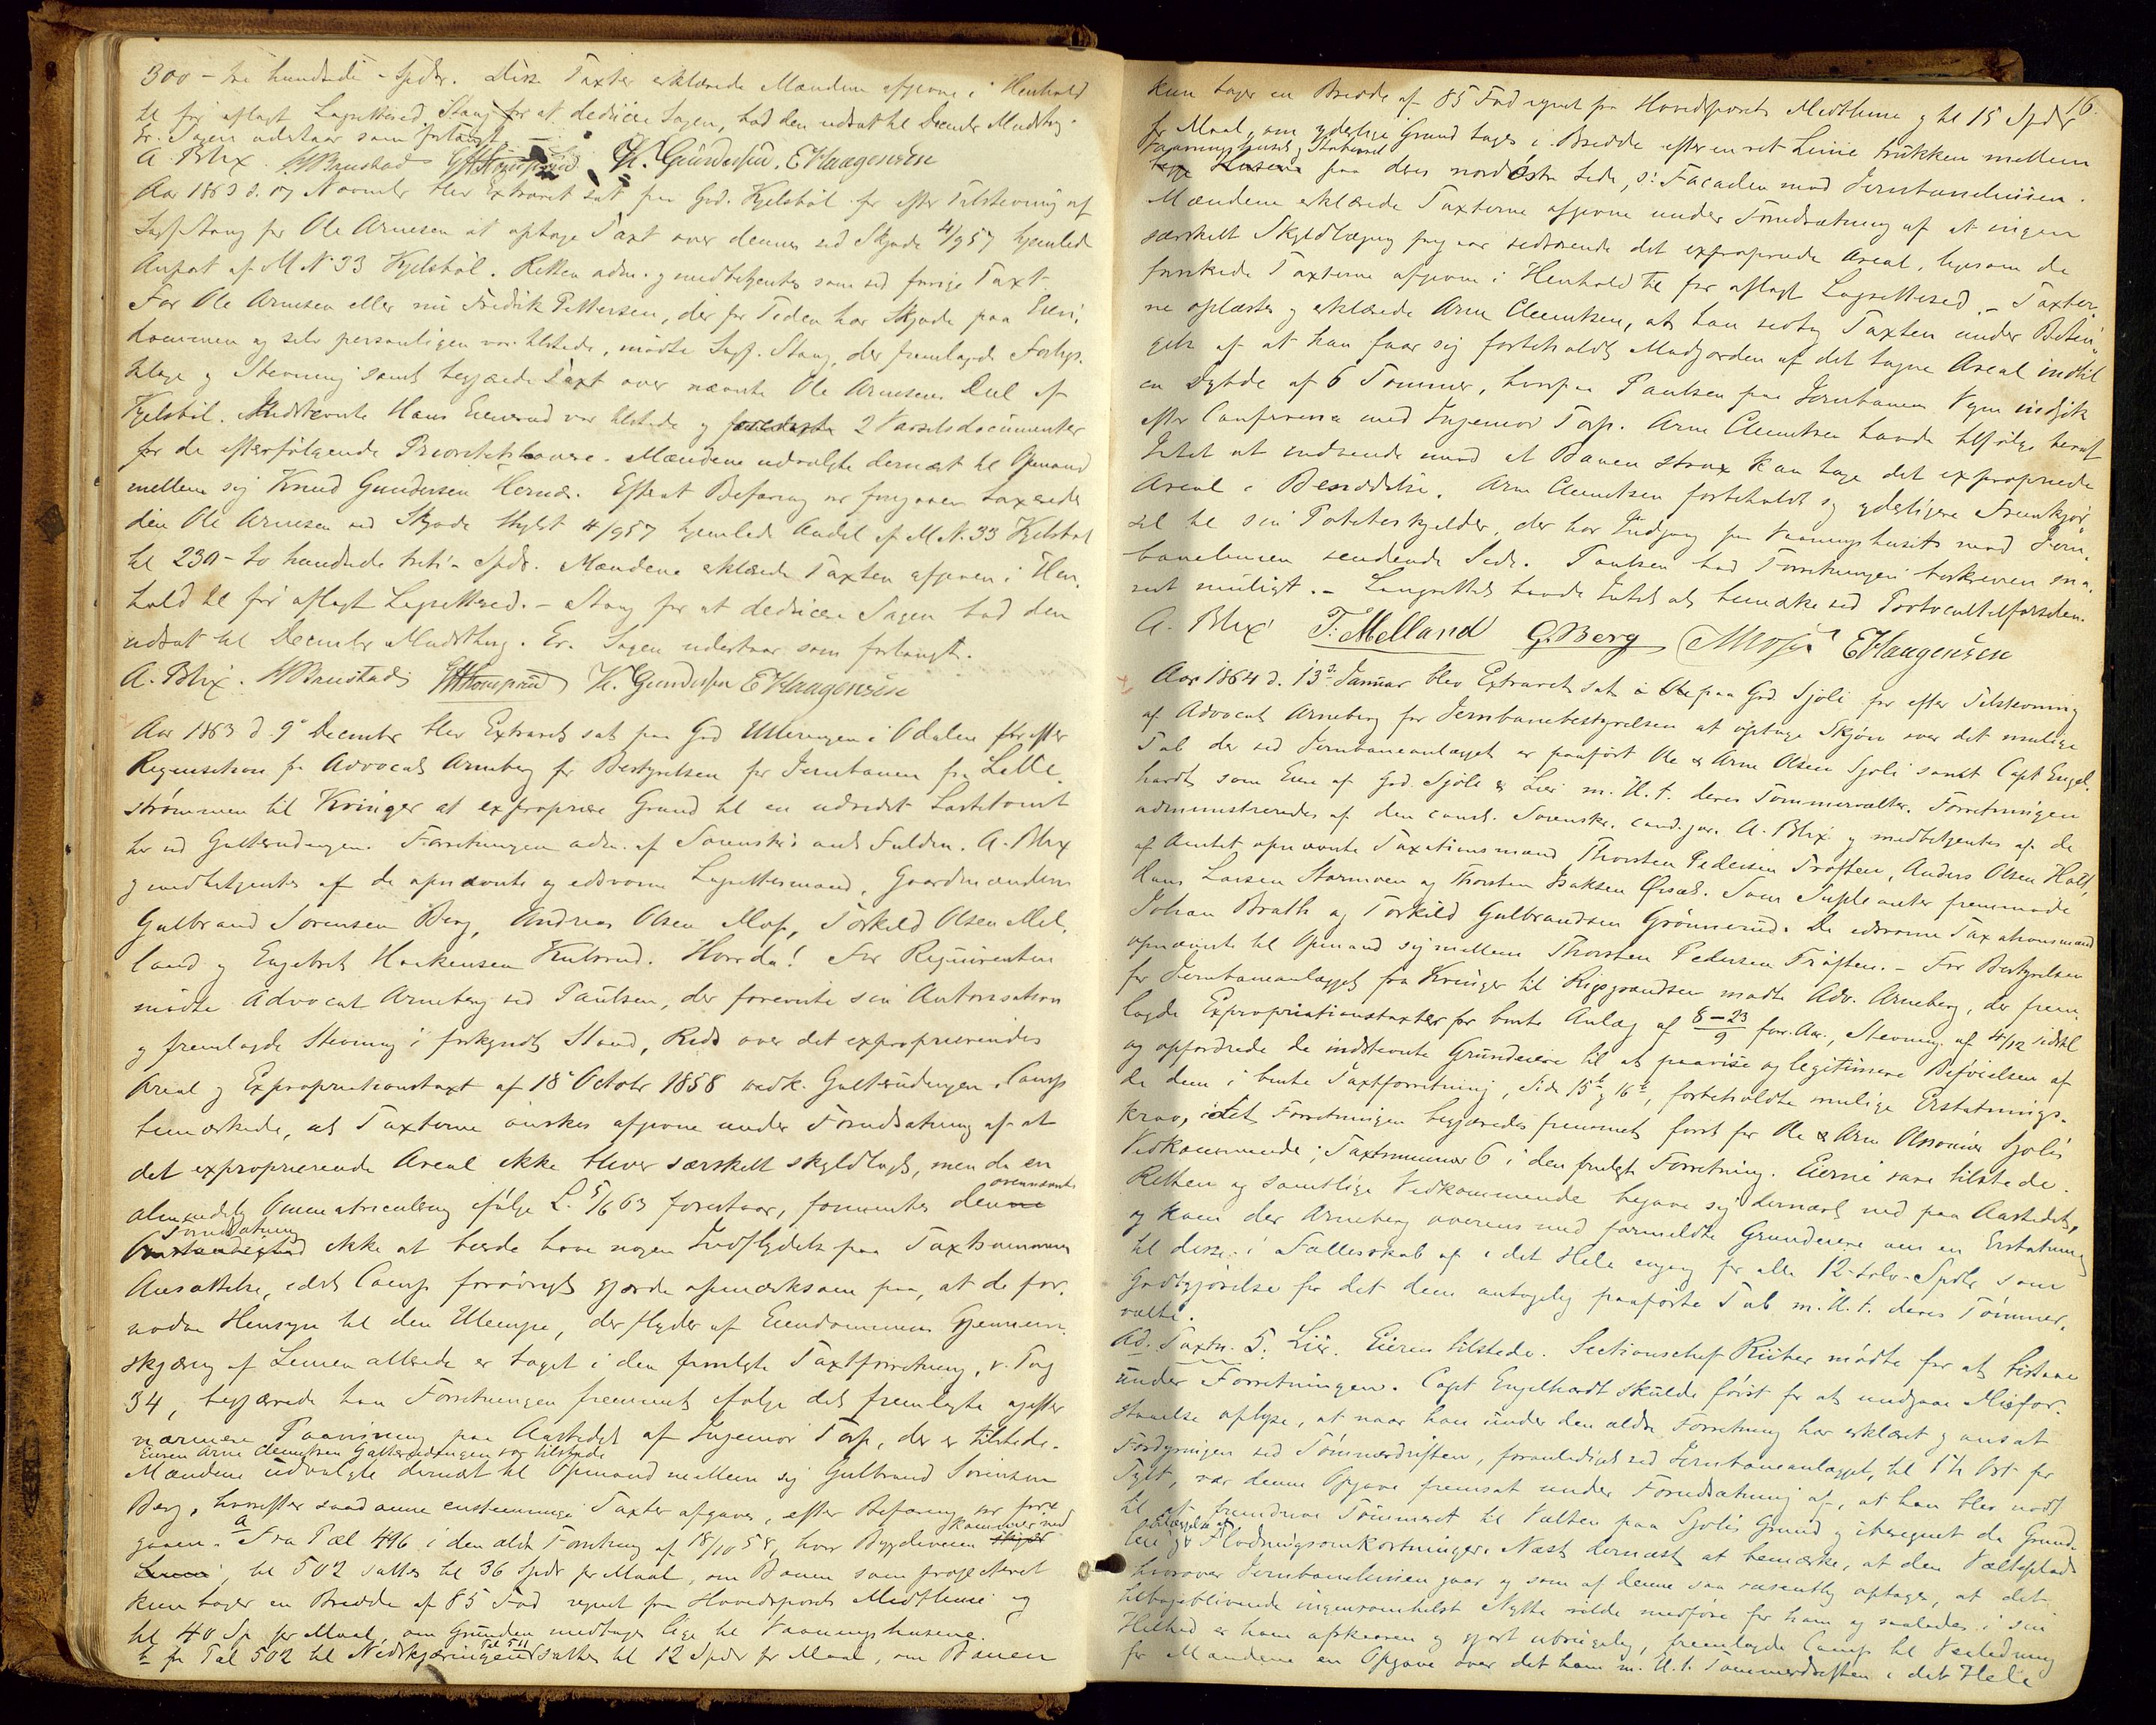 300 – tre hundrede – Spdr. Disse Taxter erklærede Mændene afgivne i Henhold
til før aflagt Lagrettesed. Stang for at deducere Sagen, bad den udsat til Decembr Maadsthg.
Er. Sagen udstaar som forlangt.
A. Blix. K. Gundersen. E Haagensen
Aar 1863 d. 17 November blev Extraret sat paa Grd. Kjelsbøl for efter Tilstevning af
Sagf. Stang for Ole Arnesen at optage Taxt over dennes ved Skjøde 4/9 57 hjemlede
Anpart af M. N. 33 Kjelsbøl. Retten adm. og medbetjentes som ved forrige Taxt.
For Ole Arnesen eller nu Fredrik Pettersen, der for Tiden har Skjøde paa Eien-
dommen og selv personligen var tilstede, mødte Sagf. Stang, der fremlagde Forligs-
klage og Stevning samt begjærede Taxt over nævnte Ole Arnesens Deel af
Kjelsbøl. Indstevnte Hans Evenrud var tilstede og 2 Varselsdocumenter
for de efterfølgende Prioritetshavere. Mændene udvalgte dernæst til Opmand
mellem sig Knud Gundersen Hernæs. Efterat Befaring var foregaaen taxeredes
den Ole Arnesen ved Skjøde thglst 4/9 57 hjemlede Andel af M. N. 33 Kjelsbøl
til 230 – to hundrede treti – Spdr. Mændene erklærede Taxten afgiven i Hen-
hold til før aflagt Lagrettesed. – Stang for at deducere Sagen bad den
udsat til December Maadsthg. Er. Sagen udstaar som forlangt.
A. Blix. K. Gundersen E Haagensen
Aar 1863 d. 9de December blev Extraret sat paa Grd Ulleringen i Odalen for efter
Reqvisition fra Advocat Arneberg for Bestyrelsen for Jernbanen fra Lille-
strømmen til Kongsvinger at expropriere Grund til en udvidet Lastetomt
her ved Galterudengen. Forretningen adm. af Sorenskr's auth Fuldm. A. Blix
og medbetjentes af de opnævnte og edsvorne Lagrettesmænd, Gaardmændene
Gulbrand Sørensen Berg, Andreas Olsen Moss, Torkild Olsen Mel-
land og Engebret Haakensen Kulsrud. Hvorda! For Reqvirenten
mødte Advocat Arneberg ved Paulsen, der foreviste sin Autorisation
og fremlagde Stevning i forkyndt Stand, Rids over det exproprierendes
Areal og Expropriationstaxt af 18de Octobr 1858 vedk. Galterudengen. Comp
bemærkede, at Taxterne ønskes afgivne under Forudsætning af at
det exproprierende Areal ikke bliver særskilt skyldlagt, men da en
almindelig Ommatriculering ifølge L. 6/6 63 forestaar, formentes ovennævnte
Forudsætning ikke at burde have nogen Indflydelse paa Taxtsummens
Ansættelse, idet Comp forøvrigt gjorde opmærksom paa, at de for-
nødne Hensyn til den Ulempe, der flyder af Eiendommens Gjennem-
skjæring af Linien allerede er taget i den fremlagte Taxtforretning, v. Pag
34, begjærede han Forretningen fremmet ifølge det fremlagte og efter
nærmere Paavisning paa Aastedet af Ingeniør Torp, der er tilstede.
Eieren Arne Clemetsen Galterudengen var tilstede
Mændene udvalgte dernæst til Opmand mellem sig Gulbrand Sørensen
Berg, hvorefter saadanne eenstemmige Taxter afgaves, efter Befaring var fore-
gaaen. a Fra Pæl 496 i den ældre Forretning af 18/10 58, hvor Bygdeveien kommer ned
til 502 sattes til 36 Spdr pr Maal, om Banen som projecteret
kun tager en Bredde af 85 Fod regnet fra Hovedsporets Midtlinie og
til 40 Sp. pr Maal, om Grunden medtages lige til Vaaningshusene.
b fra Pæl 502 til Nedskjæringen Pæl 511 sattes til 12 Spdr pr Maal, om Banen
16.
kun tager en Bredde af 85 Fod regnet fra Hovedsporets Midtlinie og til 15 Spdr
pr Maal, om yderlige Grund tages i Bredde efter en ret Linie trukken mellem
Vaaningshusets og Stabburet paa deres nordøstre Side, ɔ: Facaden mod Jernbanelinien.
Mændene erklærede Taxterne afgivne under Forudsætning af at ingen
særskilt Skyldlægning foregaar vedrørende det exproprierede Areal, ligesom de
forsikrede Taxterne afgivne i Henhold til før aflagt Lagrettesed. – Taxter-
ne oplæstes og erklærede Arne Clemetsen, at han vedtog Taxten under Betin-
gelse af at han faar sig forbeholdt Madjorden af det tagne Areal indtil
en Dybde af 6 Tommer, hvorpaa Paulsen paa Jernbanens Vegne indgik
efter Conference med Ingeniør Torp. Arne Clemetsen havde ifølge heraf
Intet at indvende imod at Banen strax kan tage det exproprierede
Areal i Besiddelse. Arne Clemetsen forbeholdt sig yderligere Fremkjør-
sel til sin Potetkjelder, der har Indgang fra Vaaningshusets mod Jern-
banelinien vendende Side. Paulsen bad Forretningen beskreven sna-
rest muligt. – Laugrettet havde Intet at bemærke ved Protocoltilførselen.
A. Blix T: Melland G. Berg AMoss E Haagensen
Aar 1864 d. 13de Januar blev Extraret sat paa Grd Sjøli for efter Tilstevning
af Advocat Arneberg for Jernbanebestyrelsen at optage Skjøn over det mulige
Tab der ved Jernbaneanlægget er paaført Ole & Arne Olsen Sjøli samt Capt Engel-
hardt som Eier af Grd. Sjøli & Lier m. H. t. deres Tømmervælter. Forretningen
administreredes af den const. Sorenskr. cand. jur. A. Blix og medbetjentes af de
af Amtet opnævnte Taxationsmænd Thorsten Pedersen Trøften, Anders Olsen Holt,
Hans Larsen Stormoen og Thorsten Isaksen Øisæt. Som Supleanter fremmødte
Johan Brath og Torkild Gulbrandsen Grønnerud. De edsvorne Taxationsmænd
opnævnte til Opmand sig mellem Thorsten Pedersen Trøften. – For Bestyrelsen
for Jernbaneanlægget fra Kongsvinger til Rigsgrændsen mødte Adv. Arneberg, der frem-
lagde Expropriationstaxter for bemte Anlæg af 8–23/9 forr. Aar, Stevning af 4/12 sidstl
og opfordrede de indstevnte Grundeiere til at paavise og legitimere Beføielsen af
de dem i bemte Taxtforretning, Side 15de og 16de, forbeholdte mulige Erstatnings-
krav, idet Forretningen begjæredes fremmet først for Ole & Arne Sjølis
Vedkommende; Taxtnummer 6 i den fremlagte Forretning. Eierne vare tilstede.
Retten og samtlige Vedkommende begave sig dernæst ned paa Aastedet,
og kom der Arneberg overens med formeldte Grundeiere om en Erstatning
til disse i Fællesskab af i det Hele engang for alle 12 – tolv – Spdlr som
Godtgjørelse for det dem antagelig paaførte Tab m. H. t. deres Tømmer-
vælte.
Ad. Taxtn. 5. Lier. Eieren tilstede. Sectionschef Rüther mødte for at bistaae
under Forretningen. Capt Engelhardt skulde først for at undgaae Misfor-
staaelse oplyse, at naar han under den ældre Forretning har erklæret og ansat
Fordyrningen ved Tømmerdriften, foranlediget ved Jernbaneanlægget, til 1½ Ort pr
Tylt, var denne Opgave fremsat under Forudsætning af, at han blev nødt
til at fremdrive Tømmeret til Vælten paa Sjølis Grund og iberegnet da Grund-
leie og Flødningsomkostninger. Næst dernæst at bemærke, at den Vælteplads
hvorover Jernbanelinien gaar og som af denne saa væsentlig optages, at det
tilbageblivende ingensomhelst Nytte vilde medføre for ham og saaledes i sin
Helhed er ham afskaaren og gjort ubrugelig, fremlagde Comp til Veiledning
for Mændene en Opgave over det ham m. H. t. Tømmerdriften i det Hele